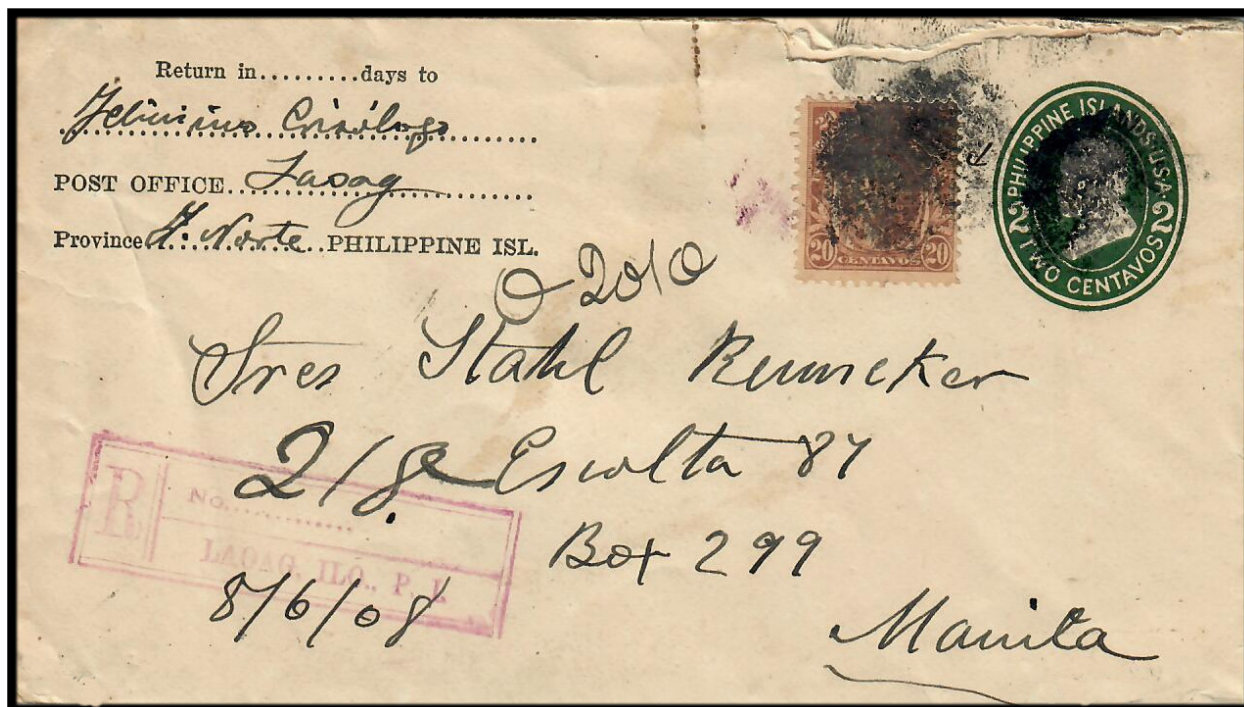 Return in..........days to
POST OFFICE Laoag
Province I. Norte PHILIPPINE ISL.
20
CENTAVOS
20
PHILIPPINE ISLANDS·U.S.A.
2 TWO CENTAVOS 2
Sres Stahl Rumcker
Escolta 87
Box 299
Manila
R
No.............
LAOAG, ILO., P. I.
8/6/08